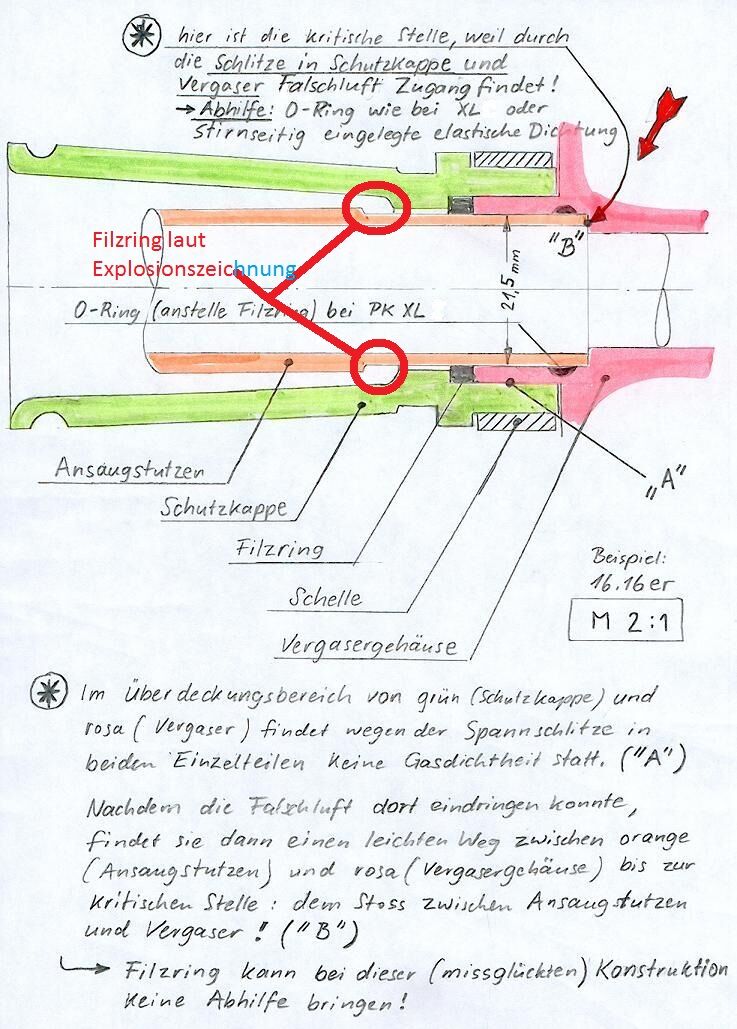 * hier ist die kritische Stelle, weil durch
die Schlitze in Schutzkappe und
Vergaser Falschluft Zugang findet!
→ Abhilfe: O-Ring wie bei XL oder
stirnseitig eingelegte elastische Dichtung
Filzring laut
Explosionszeichnung
"B"
21,5 mm
O-Ring (anstelle Filzring) bei PK XL
Ansaugstutzen
"A"
Schutzkappe
Filzring
Schelle
Vergasergehäuse
Beispiel:
16.16er
M 2:1
* Im Überdeckungsbereich von grün (Schutzkappe) und
rosa (Vergaser) findet wegen der Spannschlitze in
beiden Einzelteilen keine Gasdichtheit statt. ("A")
Nachdem die Falschluft dort eindringen konnte,
findet sie dann einen leichten Weg zwischen orange
(Ansaugstutzen) und rosa (Vergasergehäuse) bis zur
kritischen Stelle: dem Stoss zwischen Ansaugstutzen
und Vergaser! ("B")
→ Filzring kann bei dieser (missglückten) Konstruktion
keine Abhilfe bringen!